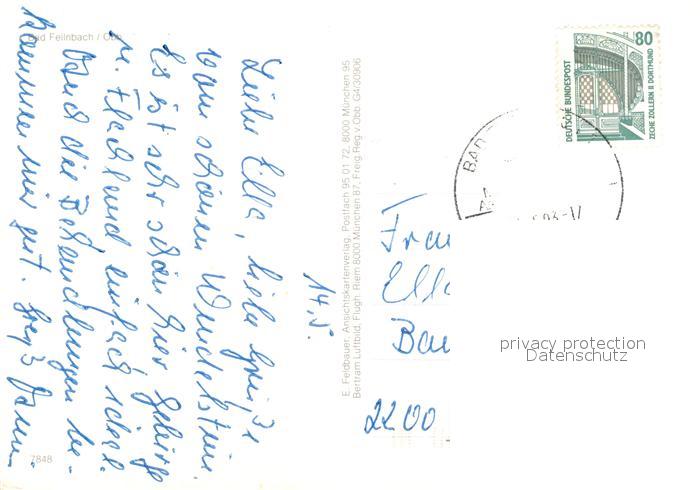 Bad Feilnbach / Obb.
14.5.
Liebe Ella, viele Grüße
vom schönen Wendelstein.
Es ist sehr schön hier Gebirge
u. Flachland einfach ideal.
und die Behandlungen be-
kommen mir gut.
7848
E. Feldbauer, Ansichtskartenverlag, Postfach 95 01 72, 8000 München 95
Bertram Luftbild, Flugh. Riem 8000 München 87, Freig.Reg.v.Obb. G4/30906
80
DEUTSCHE BUNDESPOST
ZECHE ZOLLERN II DORTMUND
BAD
Frau
Ella
Bau
2200
privacy protection
Datenschutz